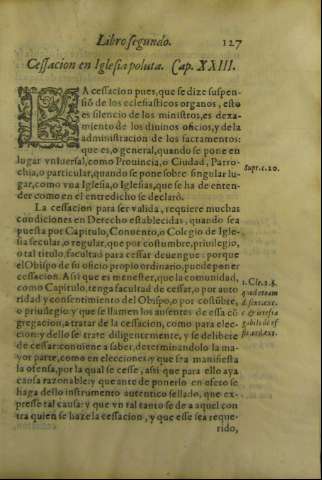 Libro segundo. 127
Cessacion en Iglesia poluta. Cap. XXIII.
LA cessacion pues, que se dize suspen-
siõ de los eclesiasticos organos, esto
es silencio de los ministros, es dexa-
miento de los diuinos oficios, y de la
administracion de los sacramentos:
que es, o general, quando se pone en
lugar vniuersal, como Prouincia, o Ciudad, Parro-
chia, o particular, quando se pone sobre singular lu-
gar, como vna Iglesia, o Iglesias, que se ha de enten-
der como en el entredicho se declarò.
supr. c. 20.
La cessacion para ser valida, requiere muchas
condiciones en Derecho establecidas, quando sea
puesta por Capitulo, Conuento, o Colegio de Igle-
sia secular, o regular, que por costumbre, priuilegio,
o tal titulo, facultad para cessar deuengue: porque
el Obispo de su oficio propio ordinario, puede poner
cessacion. Assi que es menester, que la comunidad,
como Capitulo, tenga facultad de cessar, o por auto
ridad y consentimiento del Obispo, o por costũbre,
o priuilegio: y que se llamen los ausentes de essa cõ
gregacion, a tratar de la cessacion, como para elec-
cion: y dello se trate diligentemente, y se delibere
de cessar: conuiene a saber, determinandolo la ma-
yor parte, como en elecciones: y que sea manifiesta
la ofensa, por la qual se cesse, assi que para ello aya
causa razonable: y que ante de ponerlo en efeto se
haga dello instrumento autentico sellado, que ex-
presse tal causa: y que vn tal tanto se dè a aquel con
tra quien se haze la cessacion, y que esse sea reque-
rido,